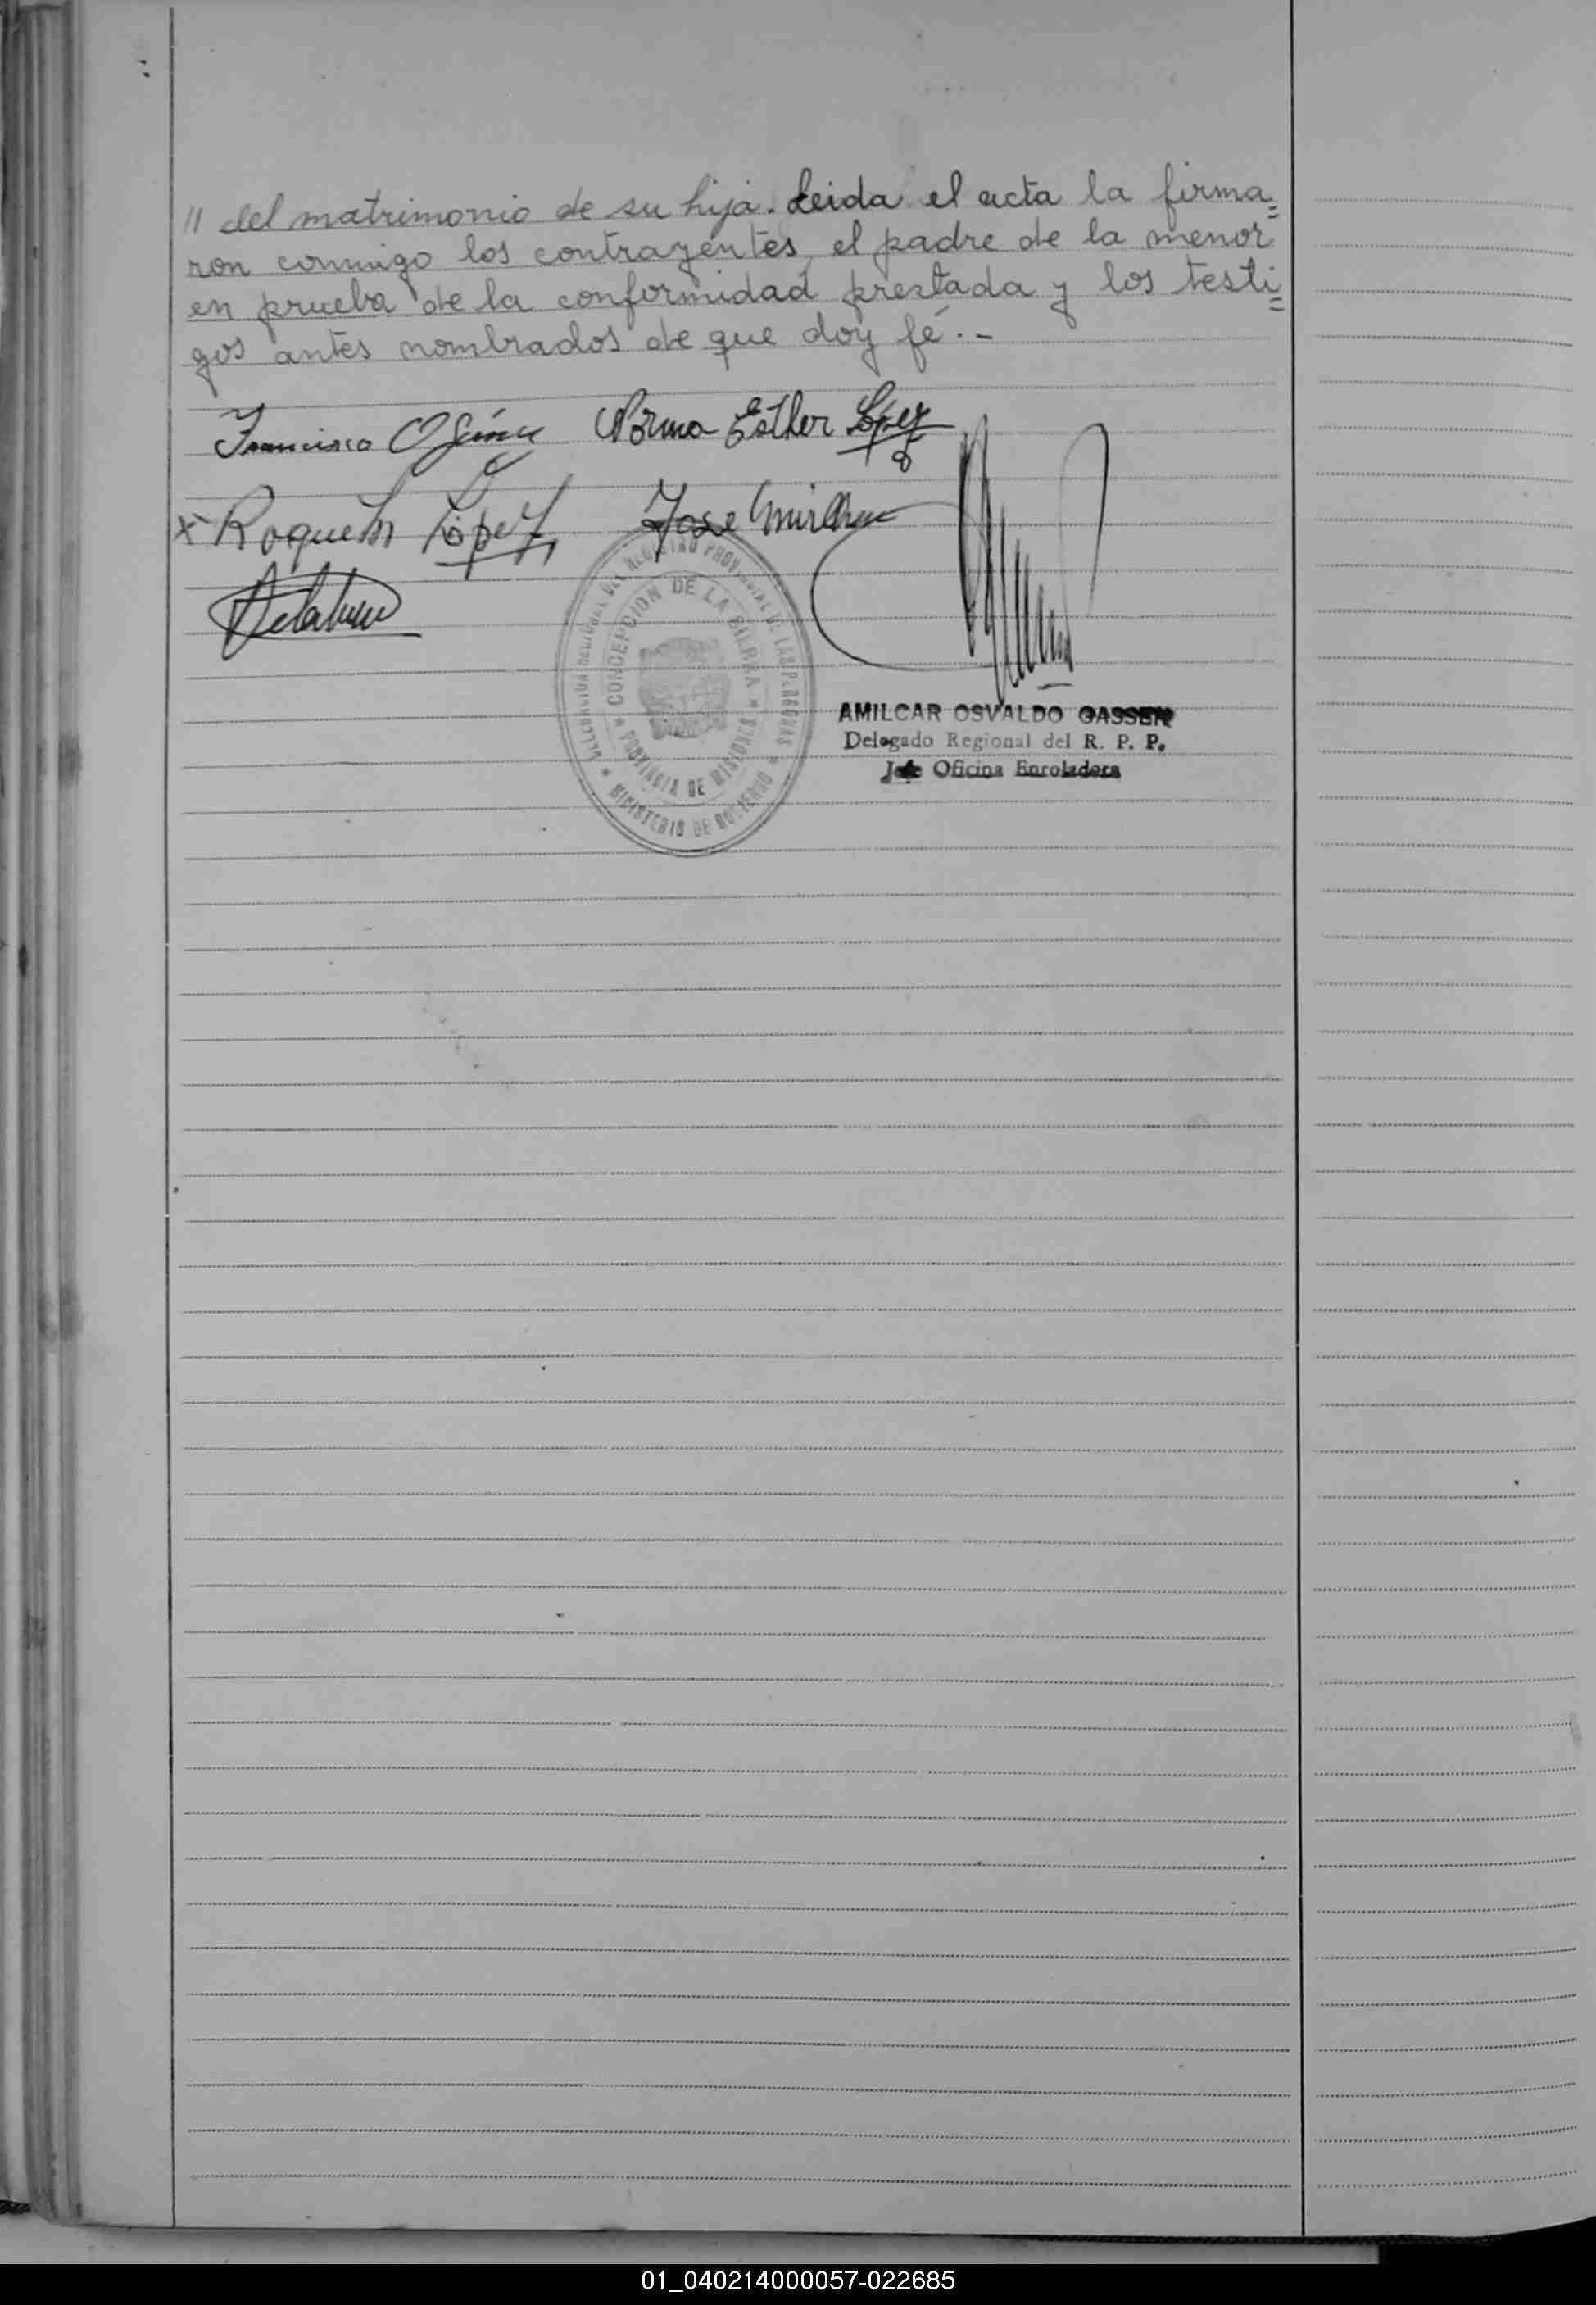 // del matrimonio de su hija. Leida el acta la firma=
ron conmigo los contrayentes, el padre de la menor
en prueba de la conformidad prestada y los testi=
gos antes nombrados de que doy fé.-
Francisco Norma Esther López
x Roque López Jose
DELEGACION REGIONAL DEL REGISTRO PROVINCIAL DE LAS PERSONAS
* MINISTERIO DE GOBIERNO *
CONCEPCION DE LA SIERRA
* PROVINCIA DE MISIONES *
AMILCAR OSVALDO GASSEN
Delegado Regional del R. P. P.
Jefe Oficina Enroladora
01_040214000057-022685